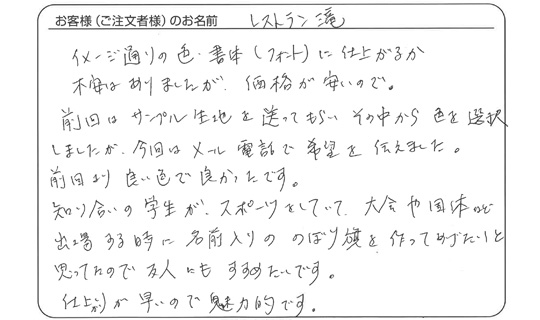 お客様(ご注文者様)のお名前 レストラン滝
イメージ通りの色・書体(フォント)に仕上がるか
不安はありましたが、価格が安いので。
前回はサンプル生地を送ってもらいその中から色を選択
しましたが、今回はメール電話で希望を伝えました。
前回より良い色で良かったです。
知り合いの学生が、スポーツをしていて、大会や国体など
出場する時に名前入りののぼり旗を作ってあげたいと
思ってたので友人にもすすめたいです。
仕上がりが早いので魅力的です。